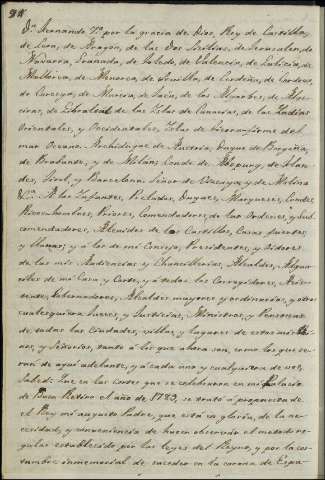 Dn. Fernando 7º por la gracia de Dios, Rey de Castilla,
de Leon, de Aragon, de las Dos Sicilias, de Jerusalen, de
Navarra, Granada, de Toledo, de Valencia, de Galicia, de
Mallorca, de Menorca, de Sevilla, de Cerdeña, de Cordova,
de Corcega, de Murcia, de Jaen, de los Algarbes, de Alge-
ciras, de Gibraltar, de las Islas de Canarias, de las Indias
Orientales, y Occidentales, Islas de tierra-firme del
mar Oceano. Archiduque de Austria, Duque de Borgoña,
de Brabante, y de Milan, Conde de Abspurg, de Flan-
des, Tirol, y Barcelona. Señor de Vizcaya, y de Molina
A los Infantes, Prelados, Duques, Marqueses, Condes,
Ricos-hombres, Priores, Comendadores de las Ordenes, y Sub-
comendadores, Alcaides de los Castillos, Casas fuertes,
y llanas; y a los de mi Consejo, Presidentes, y Oidores
de las mis Audiencias y Chancillerias, Alcaldes, Algua-
ciles de mi Casa, y Corte, y a todos los Corregidores, Asis-
tente, Gobernadores, Alcaldes mayores y ordinarios, y otros
cualesquiera Jueces, y Justicias, Ministros, y Personas
de todas las Ciudades, villas, y lugares de estos mis Rei-
nos, y Señorios, tanto á los que ahora son, como los que se-
rán de aqui adelante, y á cada uno y cualquiera de vos,
Sabed: Que en las Cortes que se celebraron en mi Palacio
de Buen Retiro el año de 1789, se trató a propuesta de
el Rey mi augusto Padre, que está en gloria, de la ne-
cesidad, y conveniencia de hacer observar el metodo re-
gular establecido por las leyes del Reyno, y por la cos-
tumbre inmemorial de suceder en la corona de Espa-